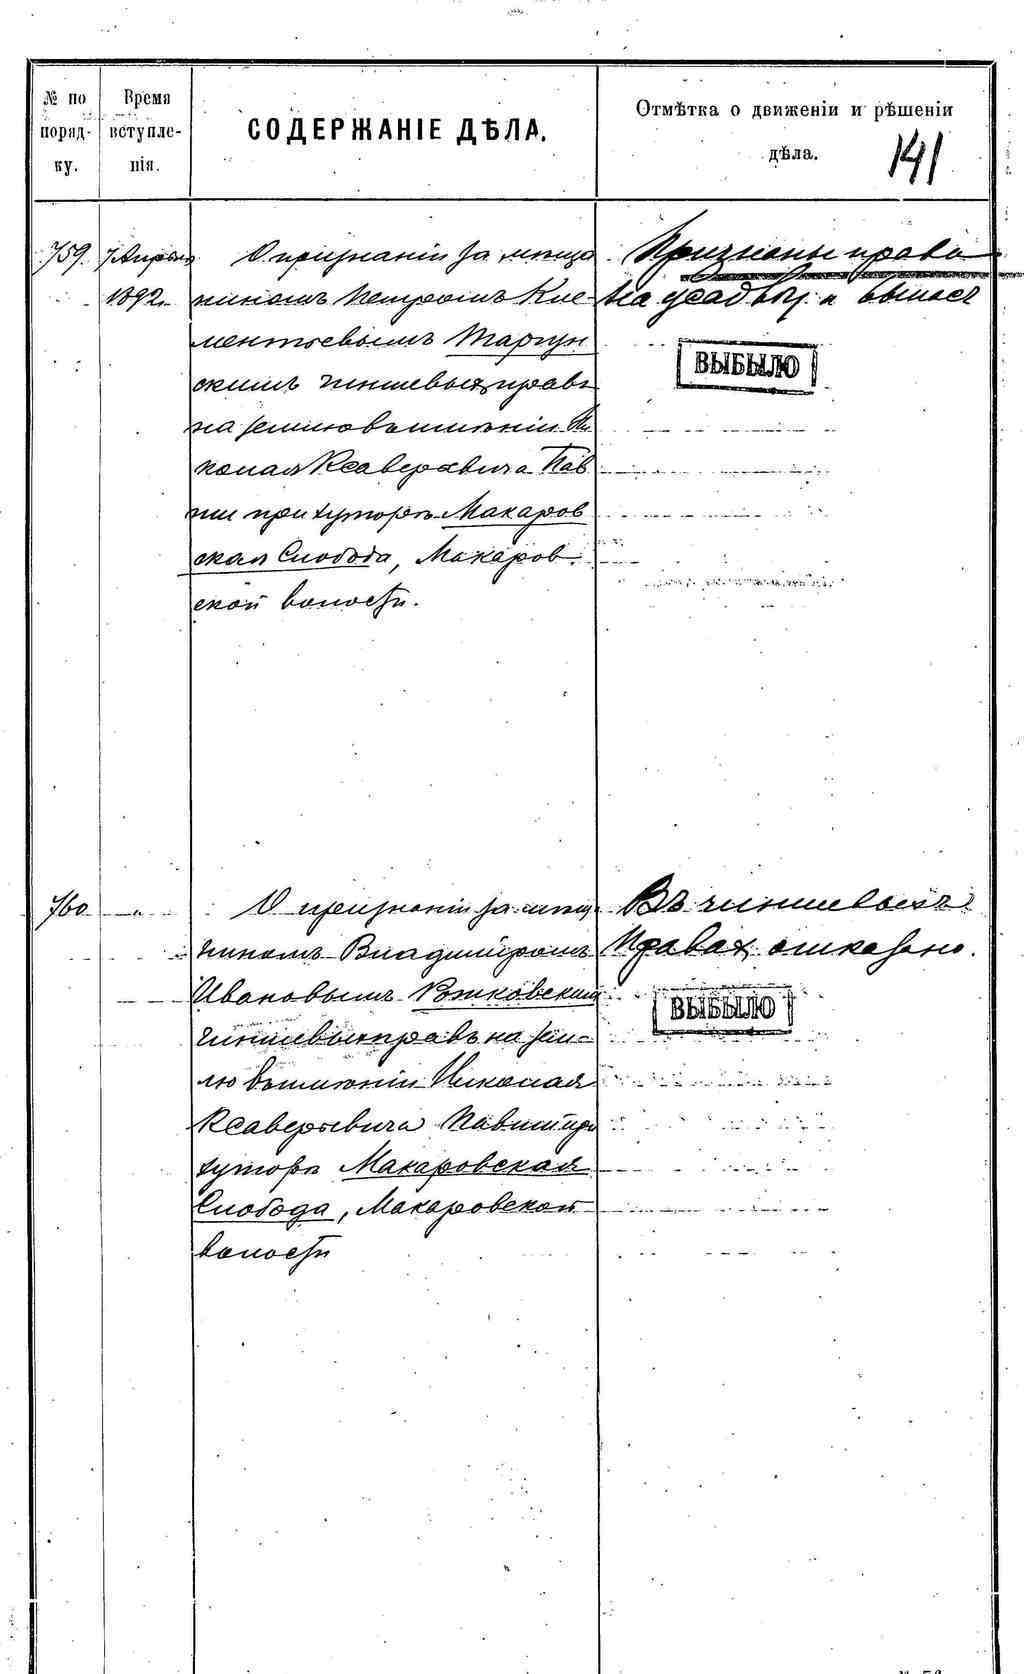 № по поряд- ку.
Время вступле- нія.
СОДЕРЖАНІЕ ДѢЛА.
Отмѣтка о движеніи и рѣшеніи дѣла.
141
759. 7 Апрѣля 1892 г.
О признаніи за мѣща
ниномъ Петромъ Кле-
ментьевымъ Маргун
скимъ чиншевыхъ правъ
на землю въ имѣніи Ни
колая Ксаверьевича Пав
ши при хуторѣ Макаров
ская Слобода, Макаров
ской волости.
Признаны права
на усадьбу и выпасъ
ВЫБЫЛО
760 — „
О признаніи за мѣщ
ниномъ Владиміромъ
Ивановымъ
чиншевых правъ на зем-
лю въ имѣніи Николая
Ксаверьевича Павши при
хуторѣ Макаровская
Слобода, Макаровской
волости
Въ чиншевыхъ
правах отказано.
ВЫБЫЛО